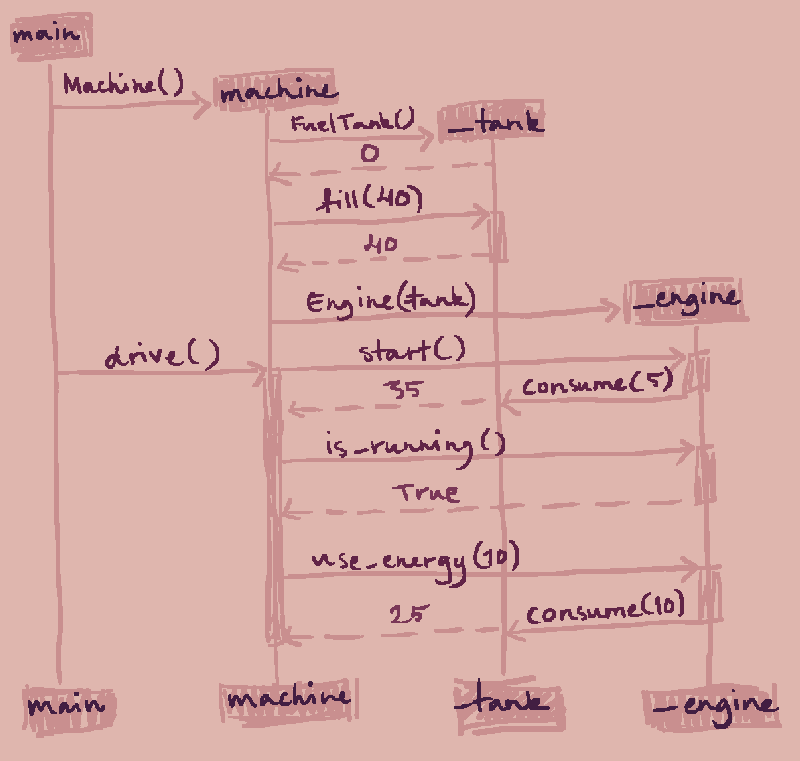 main
Machine()
machine
FuelTank()
_tank
0
fill(40)
40
Engine(tank)
_engine
drive()
start()
35
consume(5)
is_running()
True
use_energy(10)
25
consume(10)
main
machine
_tank
_engine